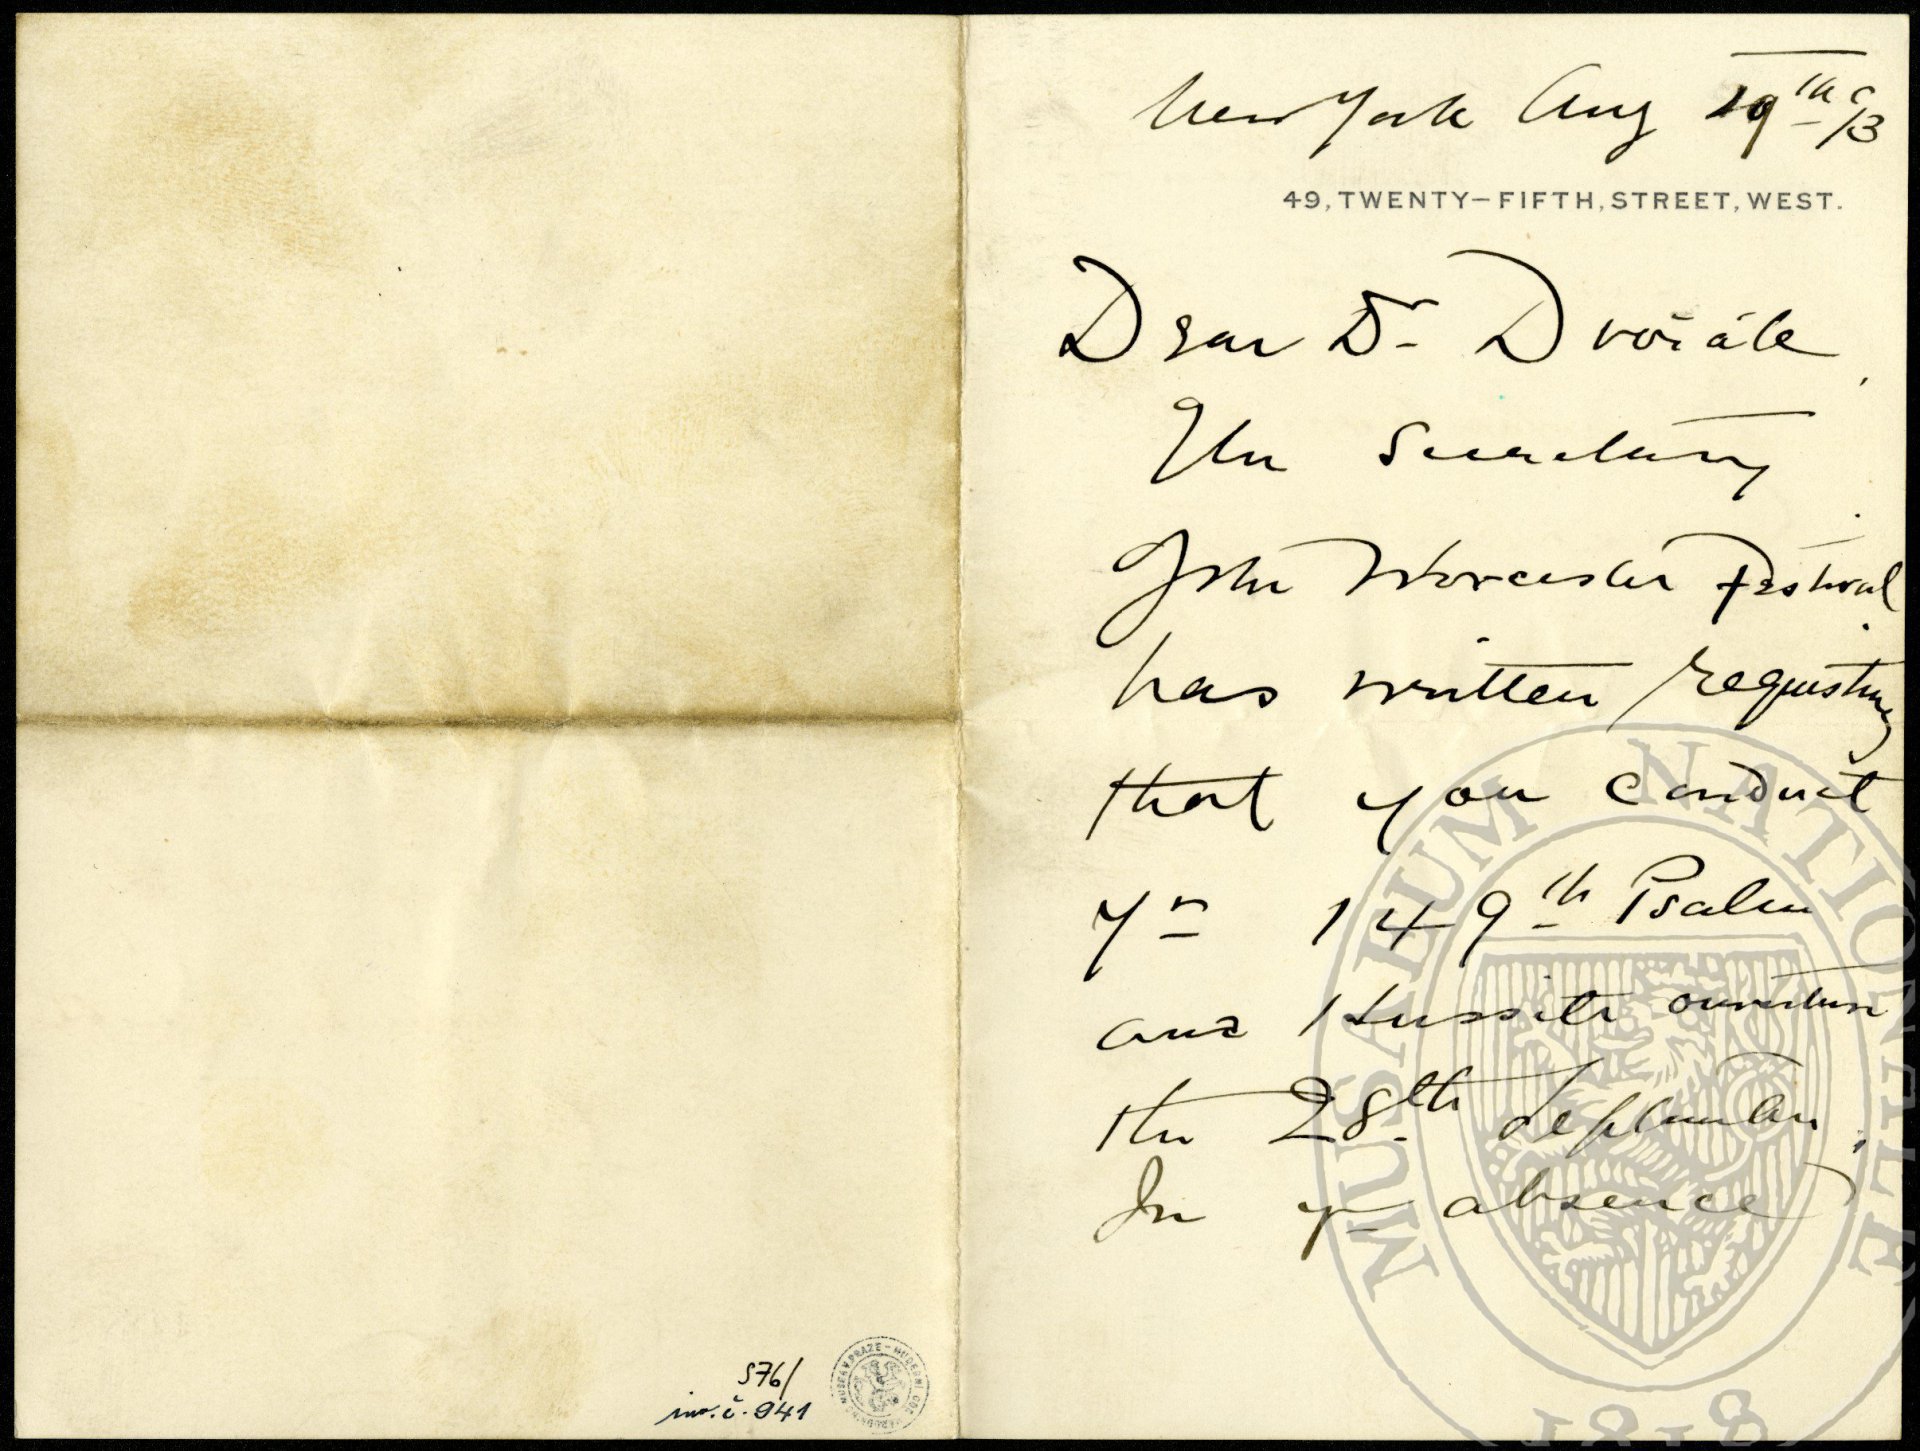 New York Aug 19th 93
49, TWENTY-FIFTH, STREET, WEST.
Dear Dr Dvořák,
The Secretary
of the Worcester Festival
has written requesting
that you conduct
yr 149th Psalm
and Hussite overture
the 28th September.
In yr absence
576/
inv. č. 941
MUSAEUM NATIONALE
1818